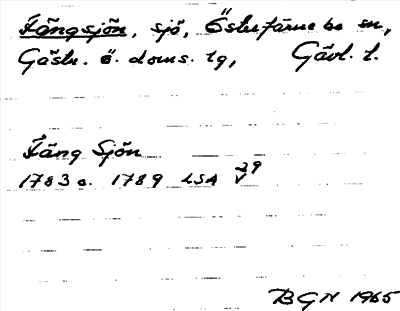 Fängsjön, sjö, Österfärnebo sn,
Gästr. ö. doms. lg, Gävl. l.
Fäng Sjön
1783 o. 1789 LSA
BGN 1965